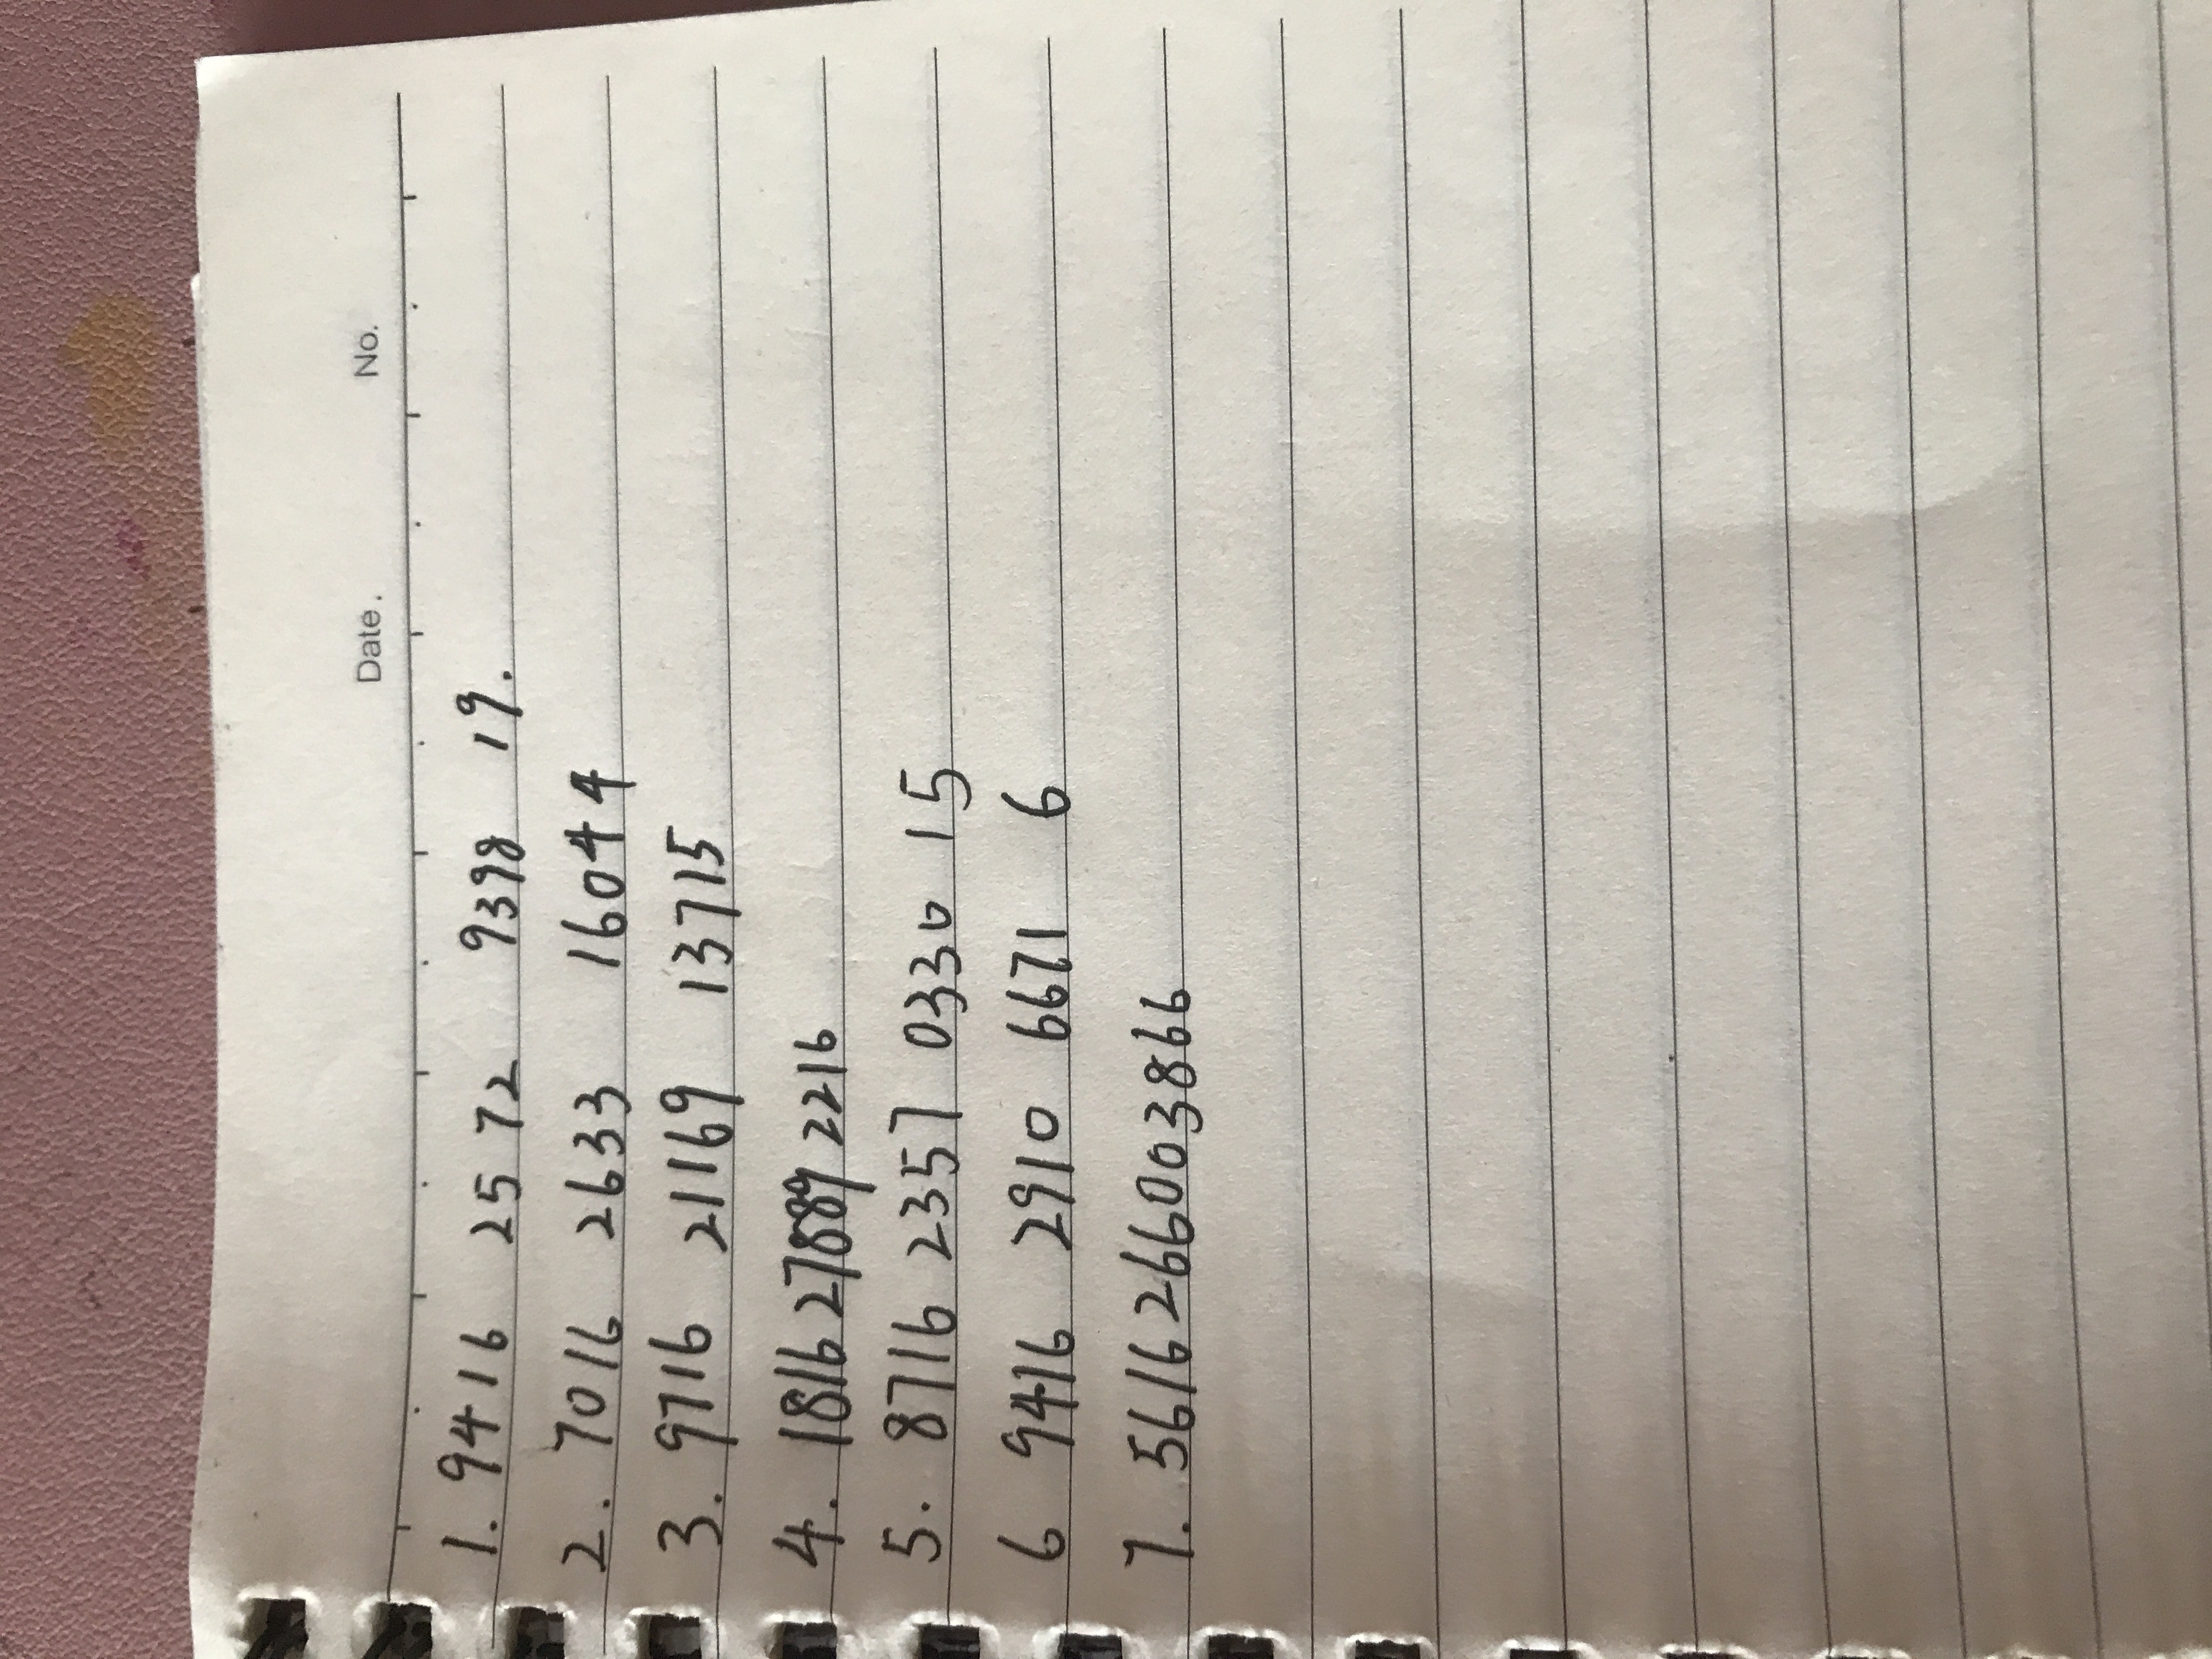 Date. No.
1. 9416 2572 9398 19.
2. 7016 2633 16044
3. 9716 21169 13715
4. 1816 27889 2216
5. 8716 2357 0330 15
6 9416 2910 6671 6
7. 5616 26600 3866